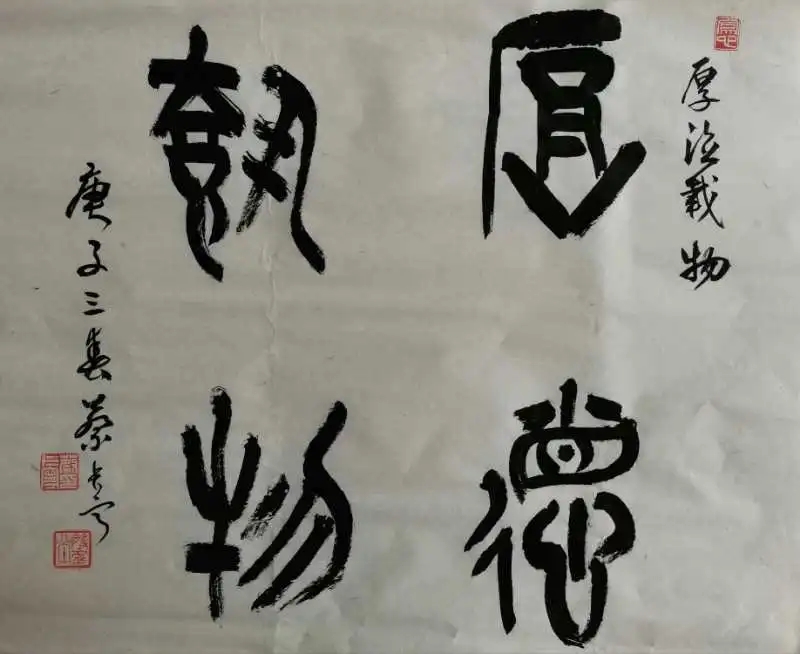 厚德載物
厚德
載物
庚子三春蔡